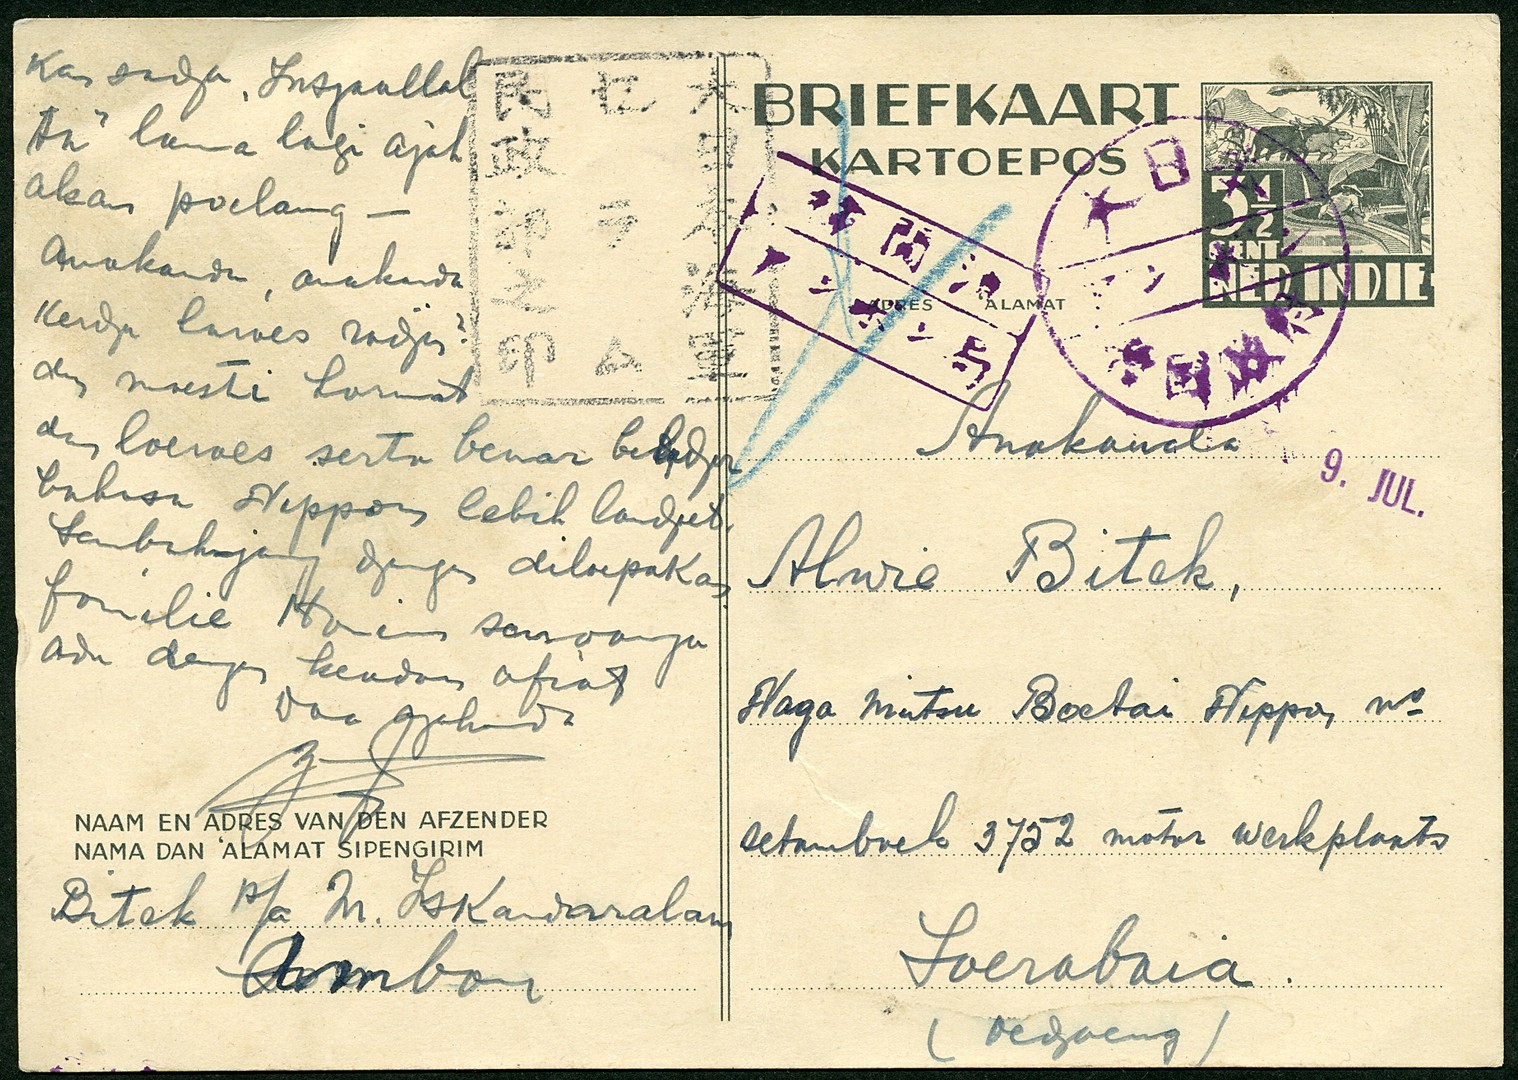 Kan sadja, Insjaallah
ta' lama lagi ajah
akan poelang —
Anakanda, anakanda
Kerdja haroes radjin?
dan moesti hormat
dan loeroes serta benar beladjar
bahasa Nippon lebih landjut.
Sembahjang djangan diloepakan
familie Horius semoanja
ada dengan keadaan afiat
Doa ajahanda
NAAM EN ADRES VAN DEN AFZENDER
NAMA DAN 'ALAMAT SIPENGIRIM
Bitek p/a M. Iskandaralam
Ambon
大日本海軍
セラム
民政部之印
BRIEFKAART
KARTOEPOS
3½
CENT
NED. INDIE
検閲済
アンボン
大日本
アンボン
ADRES 'ALAMAT
9. JUL.
Anakanda
Alwie Bitek,
Naga mitsu Boetai Nippon no
setamboek 3752 motor werkplaats
Soerabaia.
(Oedjoeng)